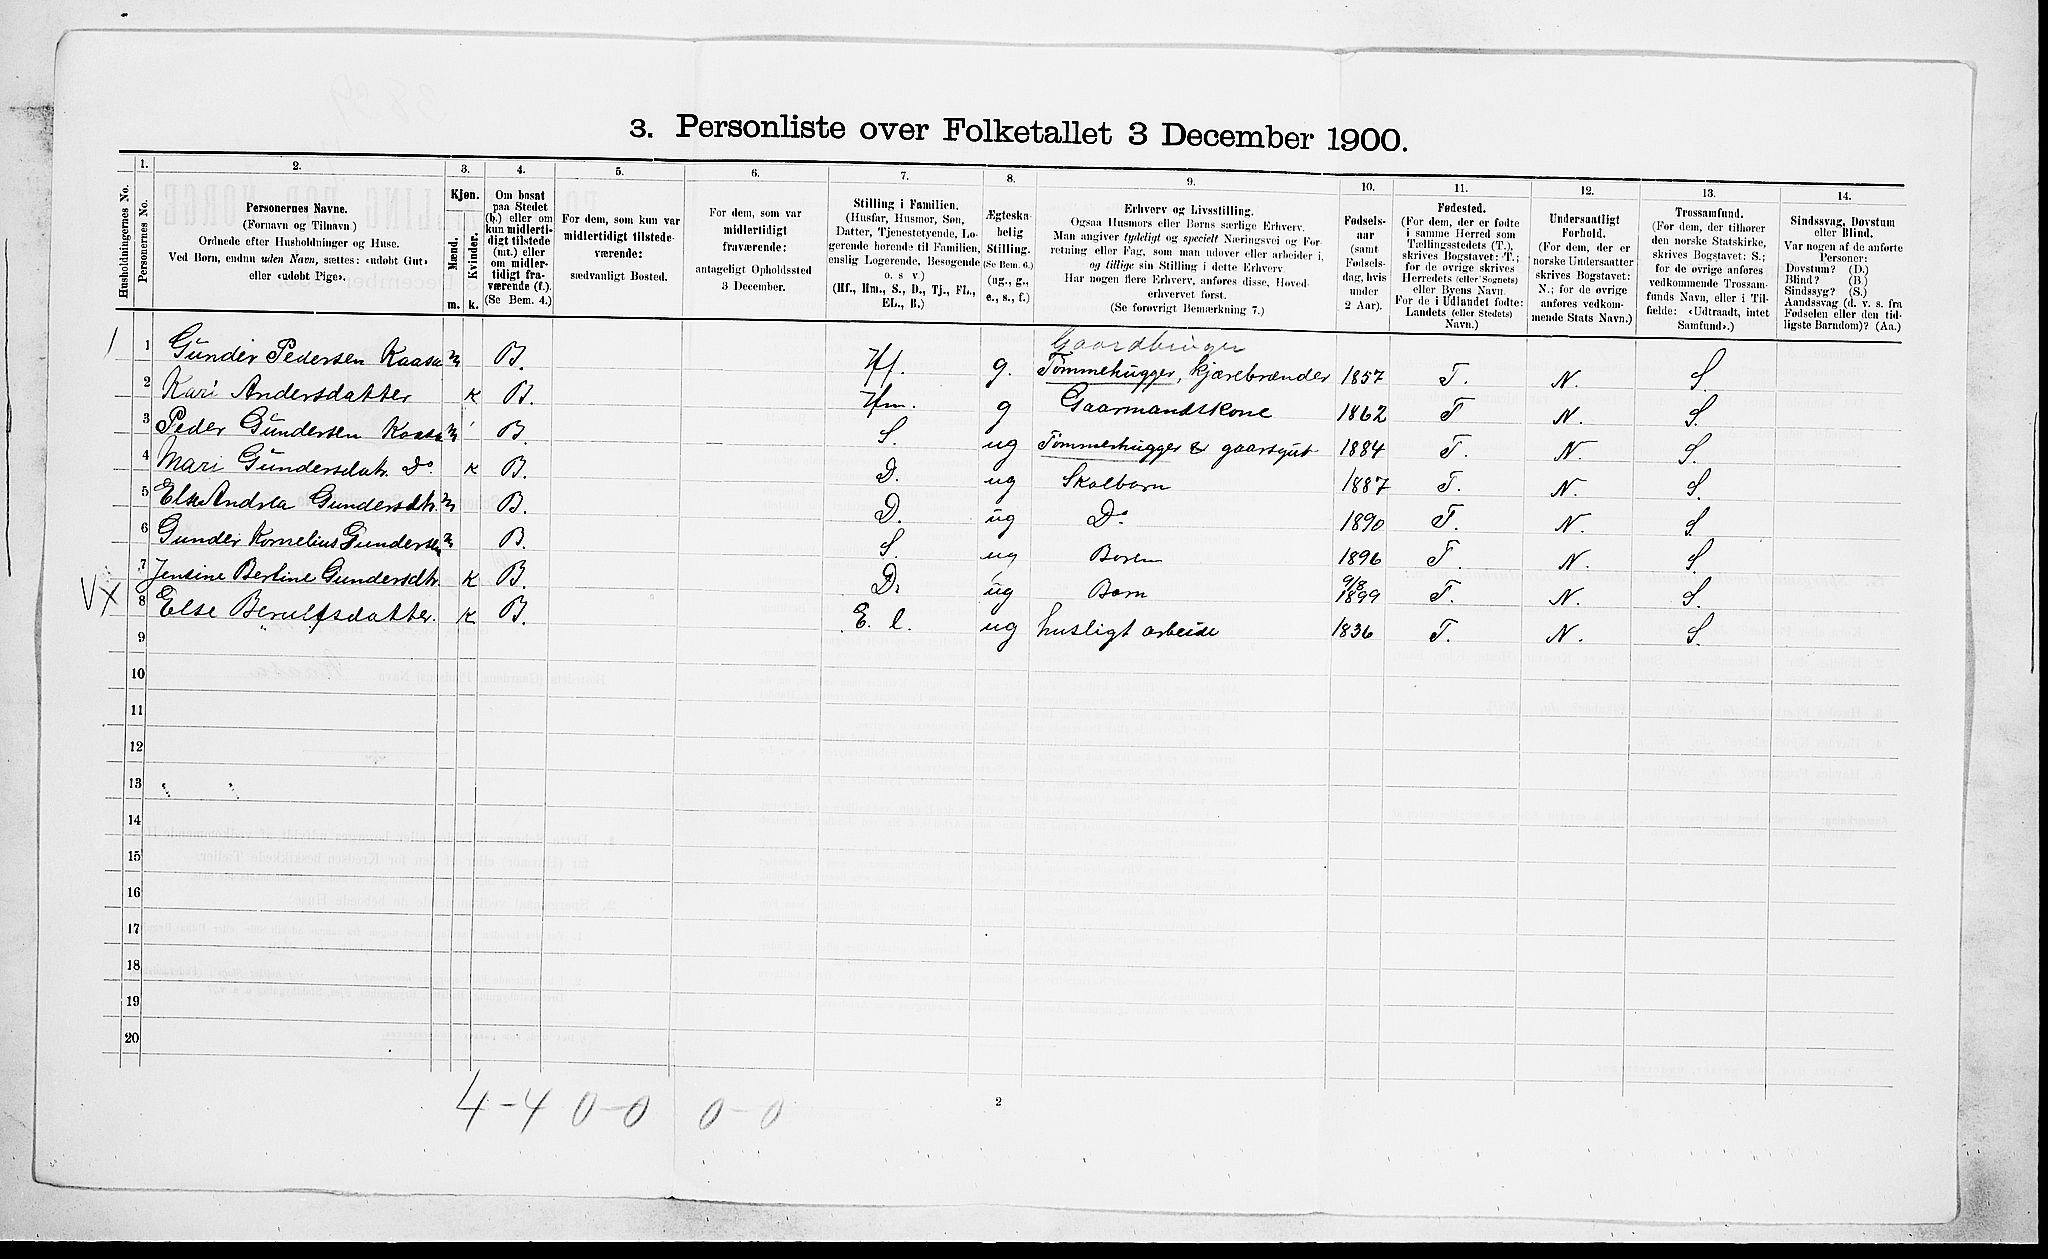 3. Personliste over Folketallet 3 December 1900.
Husholdningernes No.
1.
Personernes No.
2.
Personernes Navne.
(Fornavn og Tilnavn)
Ordnede efter Husholdninger og Huse.
Ved Børn, endnu uden Navn, sættes: «udøbt Gut»
eller «udøbt Pige».
3.
Kjøn.
Mænd.
Kvinder.
m. k.
4.
Om bosat
paa Stedet
(b.) eller om
kun midlerti-
digt tilstede
(mt.) eller
om midler-
tidigt fra-
værende (f.).
(Se Bem. 4.)
5.
For dem, som kun var
midlertidigt tilstede-
værende:
sædvanligt Bosted.
6.
For dem, som var
midlertidigt
fraværende:
antageligt Opholdssted
3 December.
7.
Stilling i Familien.
(Husfar, Husmor, Søn,
Datter, Tjenestetyende, Lo-
gerende hørende til Familien,
enslig Logerende, Besøgende
o. s v.)
(Hf., Hm., S., D., Tj., FL.,
EL., B.)
8.
Ægteska-
belig
Stilling.
(Se Bem. 6.)
(ug., g.,
e., s., f.)
9.
Erhverv og Livsstilling.
Ogsaa Husmors eller Børns særlige Erhverv.
Man angiver tydeligt og specielt Næringsvei og For-
retning eller Fag, som man udøver eller arbeider i,
og tillige sin Stilling i dette Erhverv.
Har nogen flere Erhverv, anføres disse, Hoved-
erhvervet først.
(Se forøvrigt Bemærkning 7.)
10.
Fødsels-
aar
(samt
Fødsels-
dag, hvis
under
2 Aar).
11.
Fødested.
(For dem, der er fødte
i samme Herred som
Tællingsstedets (T.),
skrives Bogstavet: T.;
for de øvrige skrives
Herredets (eller Sognets)
eller Byens Navn.
For de i Udlandet fødte:
Landets (eller Stedets)
Navn.)
12.
Undersaatligt
Forhold.
(For dem, der er
norske Undersaatter
skrives Bogstavet:
N.; for de øvrige
anføres vedkom-
mende Stats Navn.)
13.
Trossamfund.
(For dem, der tilhører
den norske Statskirke,
skrives Bogstavet: S.;
for de øvrige anføres
vedkommende Trossam-
funds Navn, eller i Til-
fælde: «Udtraadt, intet
Samfund».)
14.
Sindssvag, Døvstum
eller Blind.
Var nogen af de anførte
Personer:
Døvstum? (D.)
Blind? (B.)
Sindssyg? (S.)
Aandssvag (d. v. s. fra
Fødselen eller den tid-
ligste Barndom)? (Aa.)
Gaardbruger
1 1 Gunder Pedersen Kaasa m B. Hf. g. Tømmehugger, kjærebrænder 1857 T. N. S.
2 Kari Andersdatter k B. Hm. g Gaarmandskone 1862 T N. S.
3 Peder Gundersen Kaasa m B. S. ug Tømmerhugger & gaarsgut 1884 T. N. S.
4 Mari Gundersdatr. Do. k B. D. ug Skolbarn 1887 T. N. S.
5 Else Andrea Gundersdtr. m B. D. ug Do. 1890 T. N. S.
6 Gunder Kornelius Gundersen m B. S. ug 1896 T. N. S.
7 Jensine Bertine Gundersdtr. k B. D. ug Barn 9/8 1899 T. N. S.
Vx 8 Else Berulfsdatter. k B. E. l. ug husligt arbeide 1836 T. N. S.
9
10
11
12
13
14
15
16
17
18
19
20
4-4 0-0 0-0
2